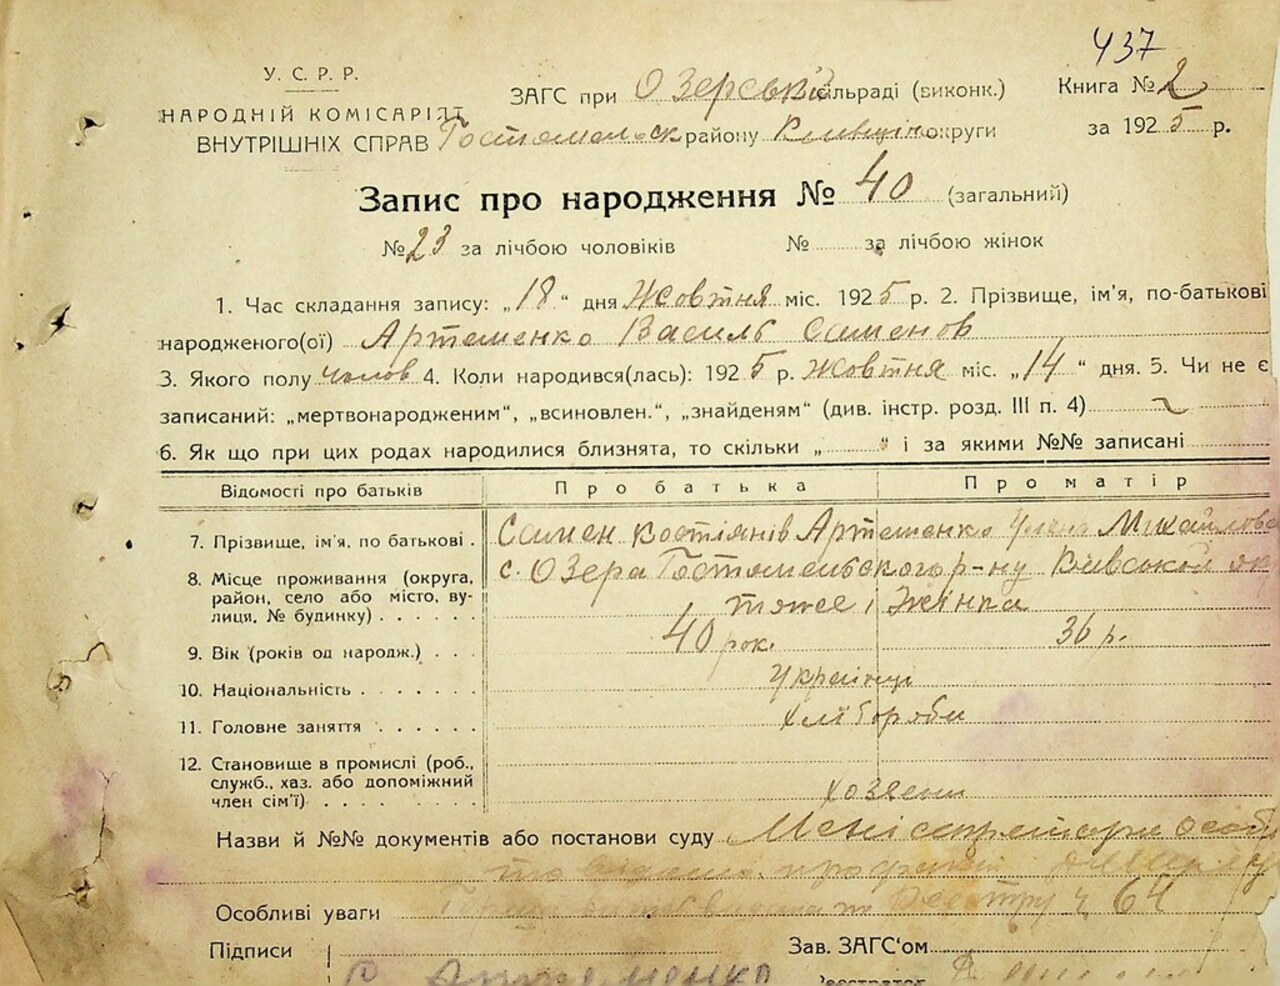 437
У. С. Р. Р.
НАРОДНІЙ КОМІСАРІЯТ
ВНУТРІШНІХ СПРАВ
ЗАГС при Озерській сільраді (виконк.) Книга № 2
Гостомельск району Київщін округи за 1925 р.
Запис про народження № 40 (загальний)
№ 23 за лічбою чоловіків № за лічбою жінок
1. Час складання запису: „18“ дня Жовтня міс. 1925 р. 2. Прізвище, ім'я, по-батькові
народженого(ої) Артеменко Василь Саменов
3. Якого полу чолов 4. Коли народився(лась): 1925 р. Жовтня міс. „14“ дня. 5. Чи не є
записаний: „мертвонародженим“, „всиновлен.“, „знайденям“ (див. інстр. розд. III п. 4)
6. Як що при цих родах народилися близнята, то скільки „ “ і за якими №№ записані
Відомості про батьків Про батька Про матір
7. Прізвище, ім'я, по батькові . Самен Костіянів Артеменко Улена Михайлова
8. Місце проживання (округа, район, село або місто, вулиця, № будинку) . . . . . . с. Озера Гостомельского р-ну Київської ок
тяже і Жінка
9. Вік (років од народж.) . . . 40 рок. 36 р.
10. Національність . . . . . . . Українці
11. Головне заняття . . . . . . Хлібороби
12. Становище в промислі (роб., служб., хаз. або допоміжний член сім'ї) . . . . . . хозяени
Назви й №№ документів або постанови суду Мені секретарю особ
Особливі уваги Реєстру ч 64
Підписи Зав. ЗАГС'ом
С Артеменко Реєстратор